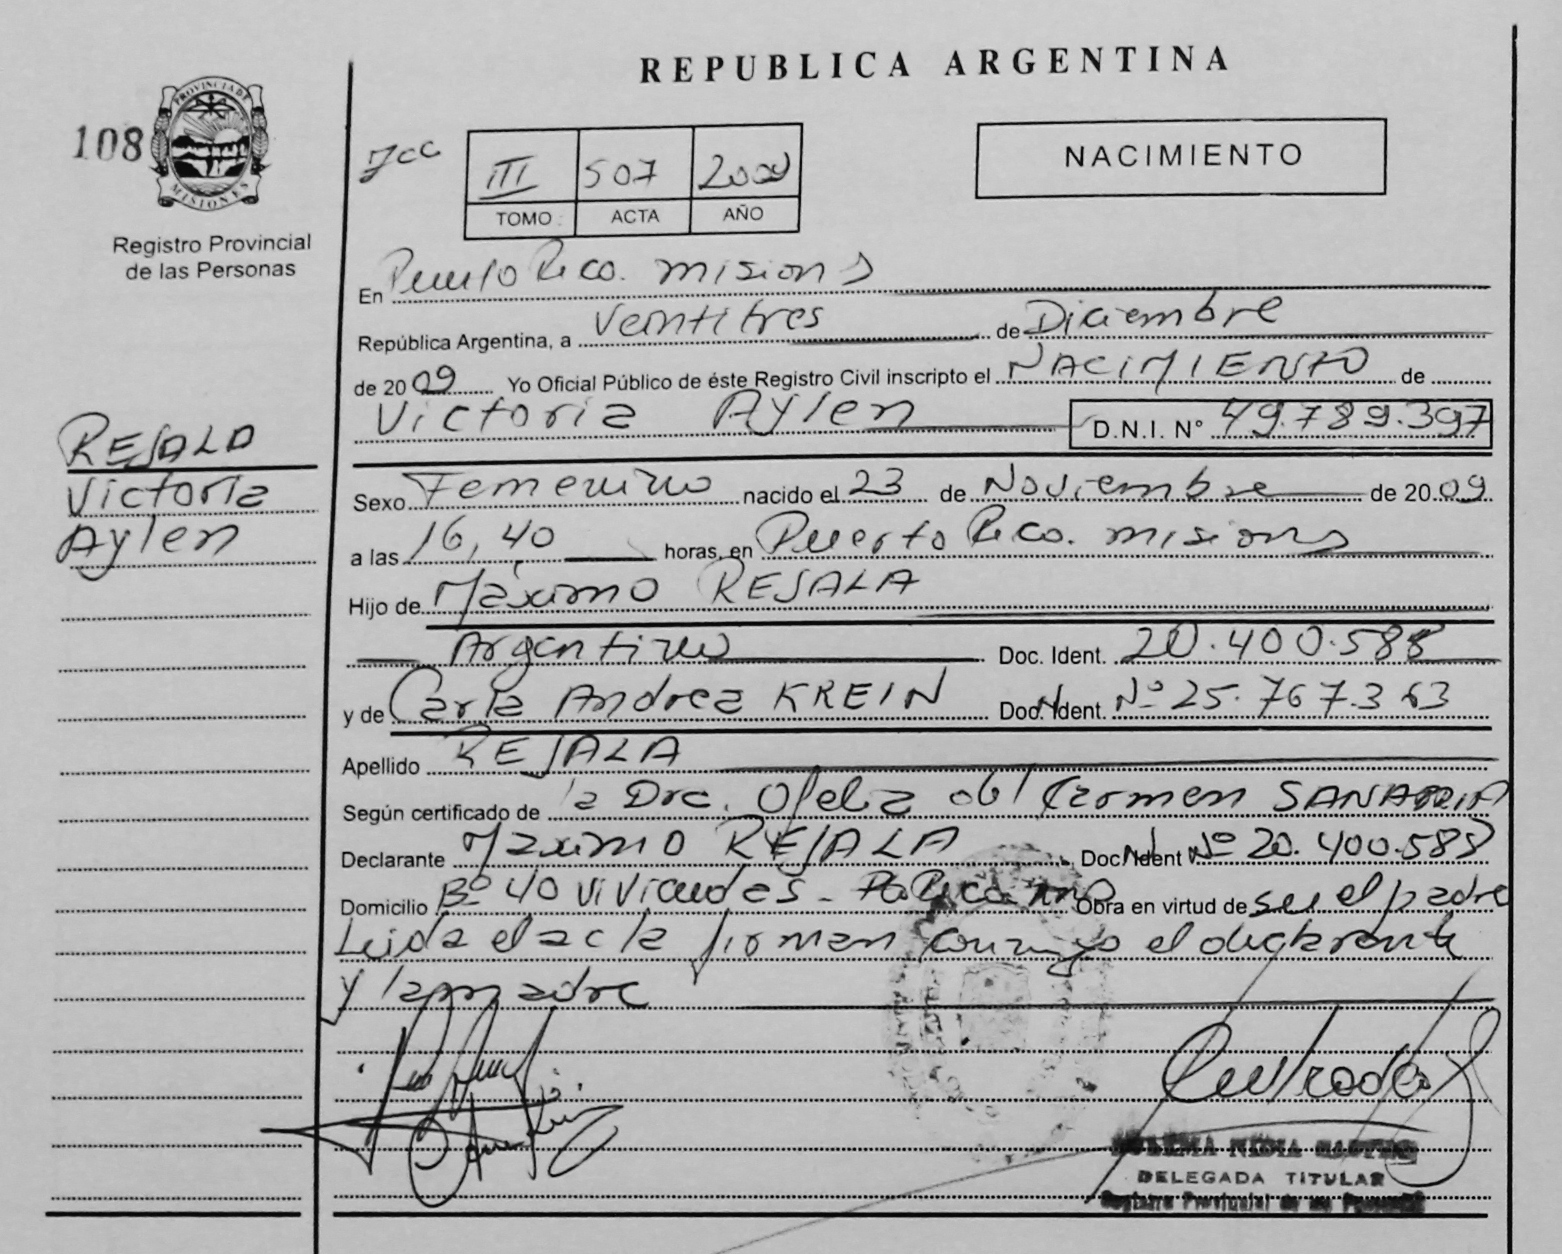 REPUBLICA ARGENTINA
108
PROVINCIA DE
MISIONES
Registro Provincial
de las Personas
III 507 2009
TOMO ACTA AÑO
NACIMIENTO
En Puerto Rico. Misiones
República Argentina, a Veintitres de Diciembre
de 2009 Yo Oficial Público de éste Registro Civil inscripto el NACIMIENTO de
Victoria Aylen D.N.I. N° 49.789.397
REJALA
Victoria
Aylen
Sexo Femenino nacido el 23 de Noviembre de 2009
a las 16,40 horas, en Puerto Rico. Misiones
Hijo de Máximo REJALA
Argentino Doc. Ident. 20.400.588
y de Carla Andrea KREIN Doc. Ident. N° 25.767.363
Apellido REJALA
Según certificado de la Dra. Ofelia del Carmen SANABRIA
Declarante Máximo REJALA Doc Ident N° 20.400.588
Domicilio B° 40 Viviendas - Pto Rico. Mnes Obra en virtud de ser el padre
Leida el acta firman conmigo el declarante
y la madre
DELEGADA TITULAR
Registro Provincial de las Personas